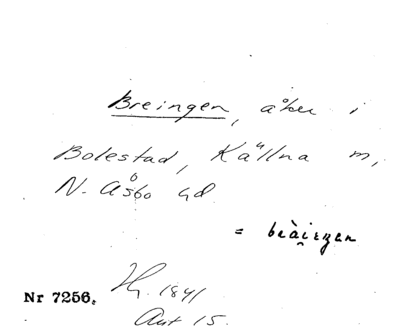 Breingen, åker i
Bolestad, Källna sn,
N. Åsbo hd
= bèa̯iṛgen
Nr 7256. Hy. 1841
Akt 15.